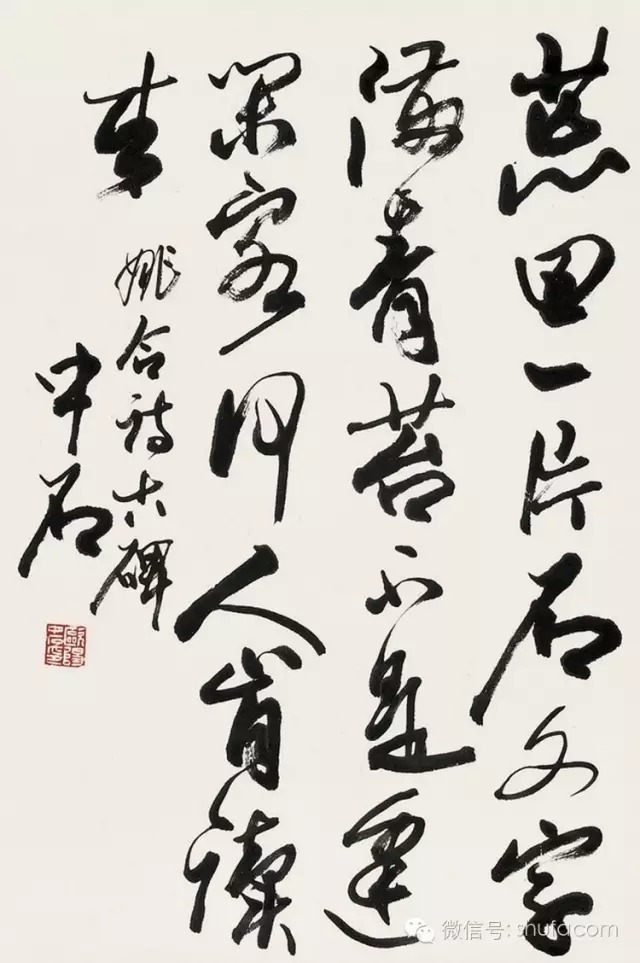 荒田一片石文字
滿青苔不是逢
閑客何人肯讀
来
姚合詩古碑
中石
微信号: shufacom